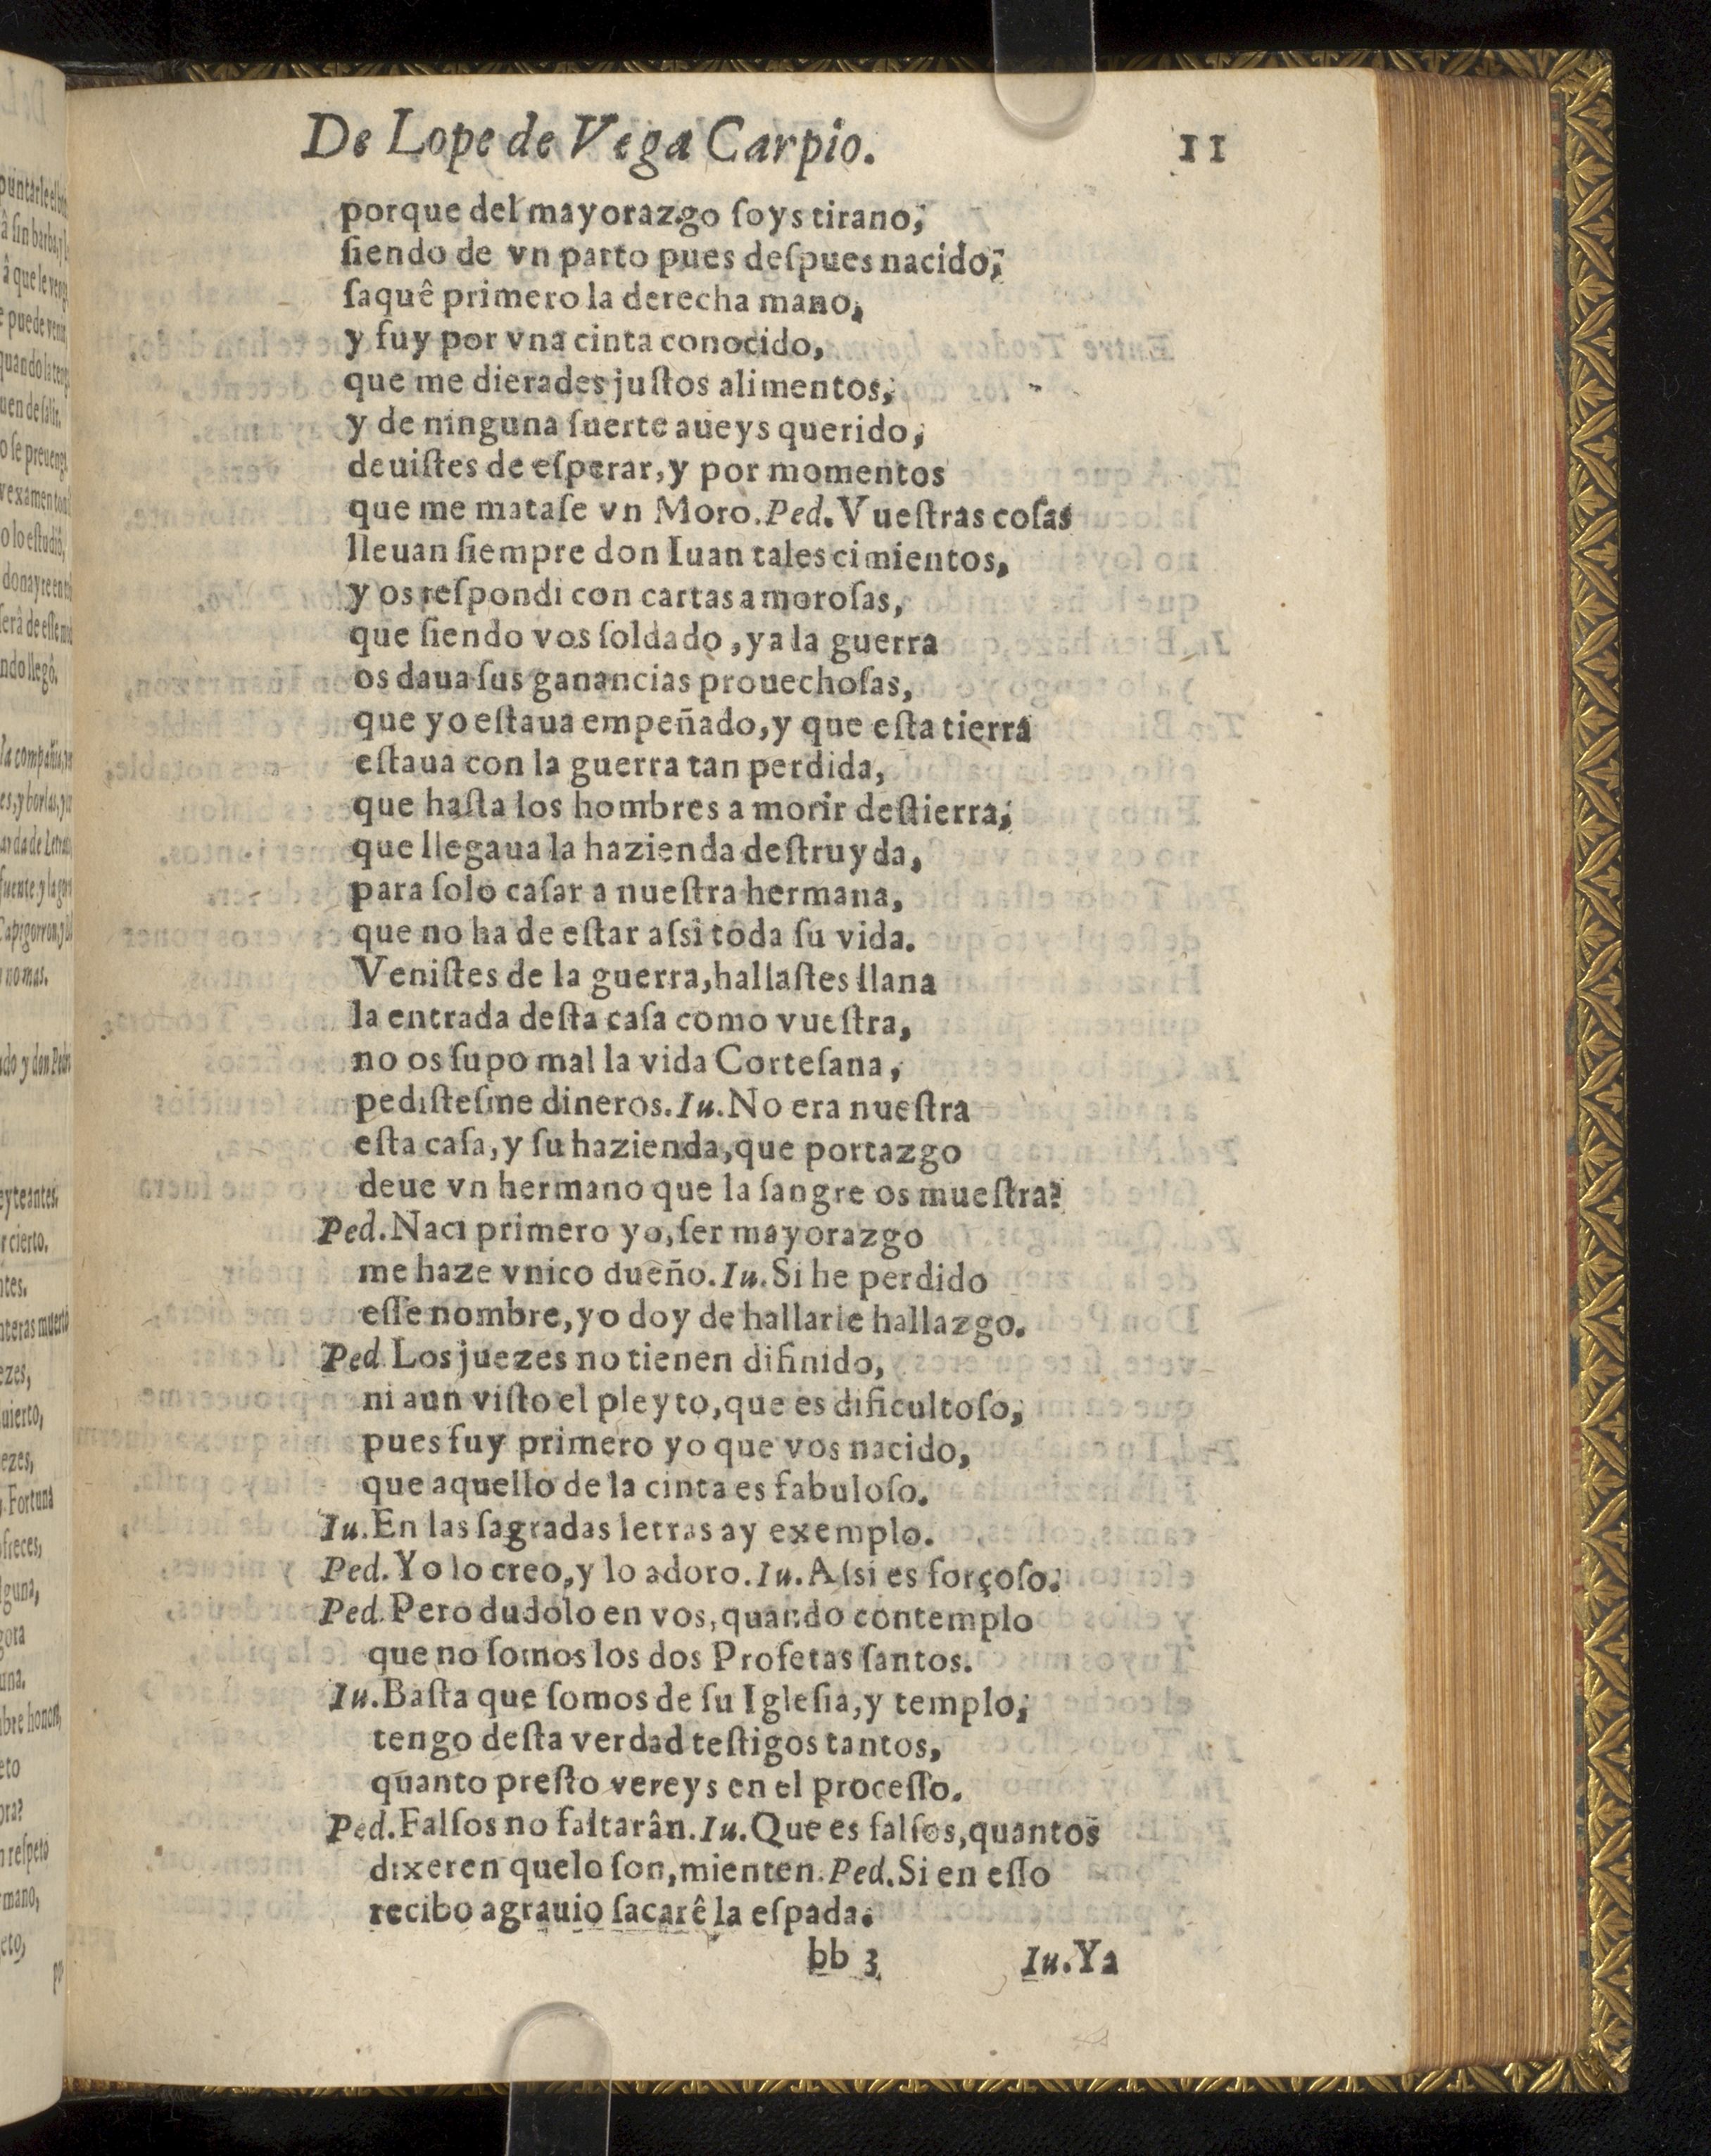 De Lope de Vega Carpio. 11
porque del mayorazgo ſoys tirano,
ſiendo de vn parto pues deſpues nacido,
ſaquê primero la derecha mano,
y fuy por vna cinta conocido,
que me dierades juſtos alimentos,
y de ninguna ſuerte aueys querido,
deuiſtes de eſperar, y por momentos
que me mataſe vn Moro. Ped. Vueſtras coſas
lleuan ſiempre don Iuan tales cimientos,
y os reſpondi con cartas amoroſas,
que ſiendo vos ſoldado, ya la guerra
os daua ſus ganancias prouechoſas,
que yo eſtaua empeñado, y que eſta tierra
eſtaua con la guerra tan perdida,
que haſta los hombres a morir deſtierra,
que llegaua la hazienda deſtruyda,
para ſolo caſar a nueſtra hermana,
que no ha de eſtar aſsi toda ſu vida.
Veniſtes de la guerra, hallaſtes llana
la entrada deſta caſa como vueſtra,
no os ſupo mal la vida Corteſana,
pediſteſme dineros. Iu. No era nueſtra
eſta caſa, y ſu hazienda, que portazgo
deue vn hermano que la ſangre os mueſtra?
Ped. Naci primero yo, ſer mayorazgo
me haze vnico dueño. Iu. Si he perdido
eſſe nombre, yo doy de hallarle hallazgo.
Ped Los juezes no tienen difinido,
ni aun viſto el pleyto, que es dificultoſo,
pues fuy primero yo que vos nacido,
que aquello de la cinta es fabuloſo.
Iu. En las ſagradas letras ay exemplo.
Ped. Yo lo creo, y lo adoro. Iu. Aſsi es forçoſo.
Ped. Pero dudolo en vos, quando contemplo
que no ſomos los dos Profetas ſantos.
Iu. Baſta que ſomos de ſu Igleſia, y templo,
tengo deſta verdad teſtigos tantos,
quanto preſto vereys en el proceſſo.
Ped. Falſos no faltarân. Iu. Que es falſos, quantos
dixeren que lo ſon, mienten. Ped. Si en eſſo
recibo agrauio ſacarê la eſpada.
bb 3 Iu. Ya